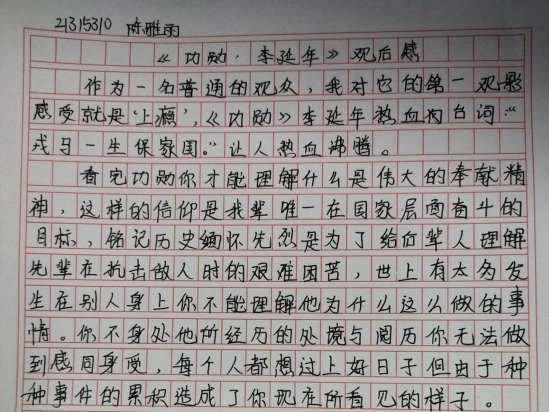 21315310 陈雅雨
《功勋·李延年》观后感
作为一名普通的观众，我对它的第一观影
感受就是‘上瘾’，《功勋》李延年热血的台词“
戎马一生保家国。”让人热血沸腾。
看完功勋你才能理解什么是伟大的奉献精
神，这样的信仰是我辈唯一在国家层面奋斗的
目标，铭记历史缅怀先烈是为了给后辈人理解
先辈在抗击敌人时的艰难困苦，世上有太多发
生在别人身上你不能理解他为什么这么做的事
情。你不身处他所经历的处境与阅历你无法做
到感同身受，每个人都想过上好日子但由于种
种事件的累积造成了你现在所看见的样子。